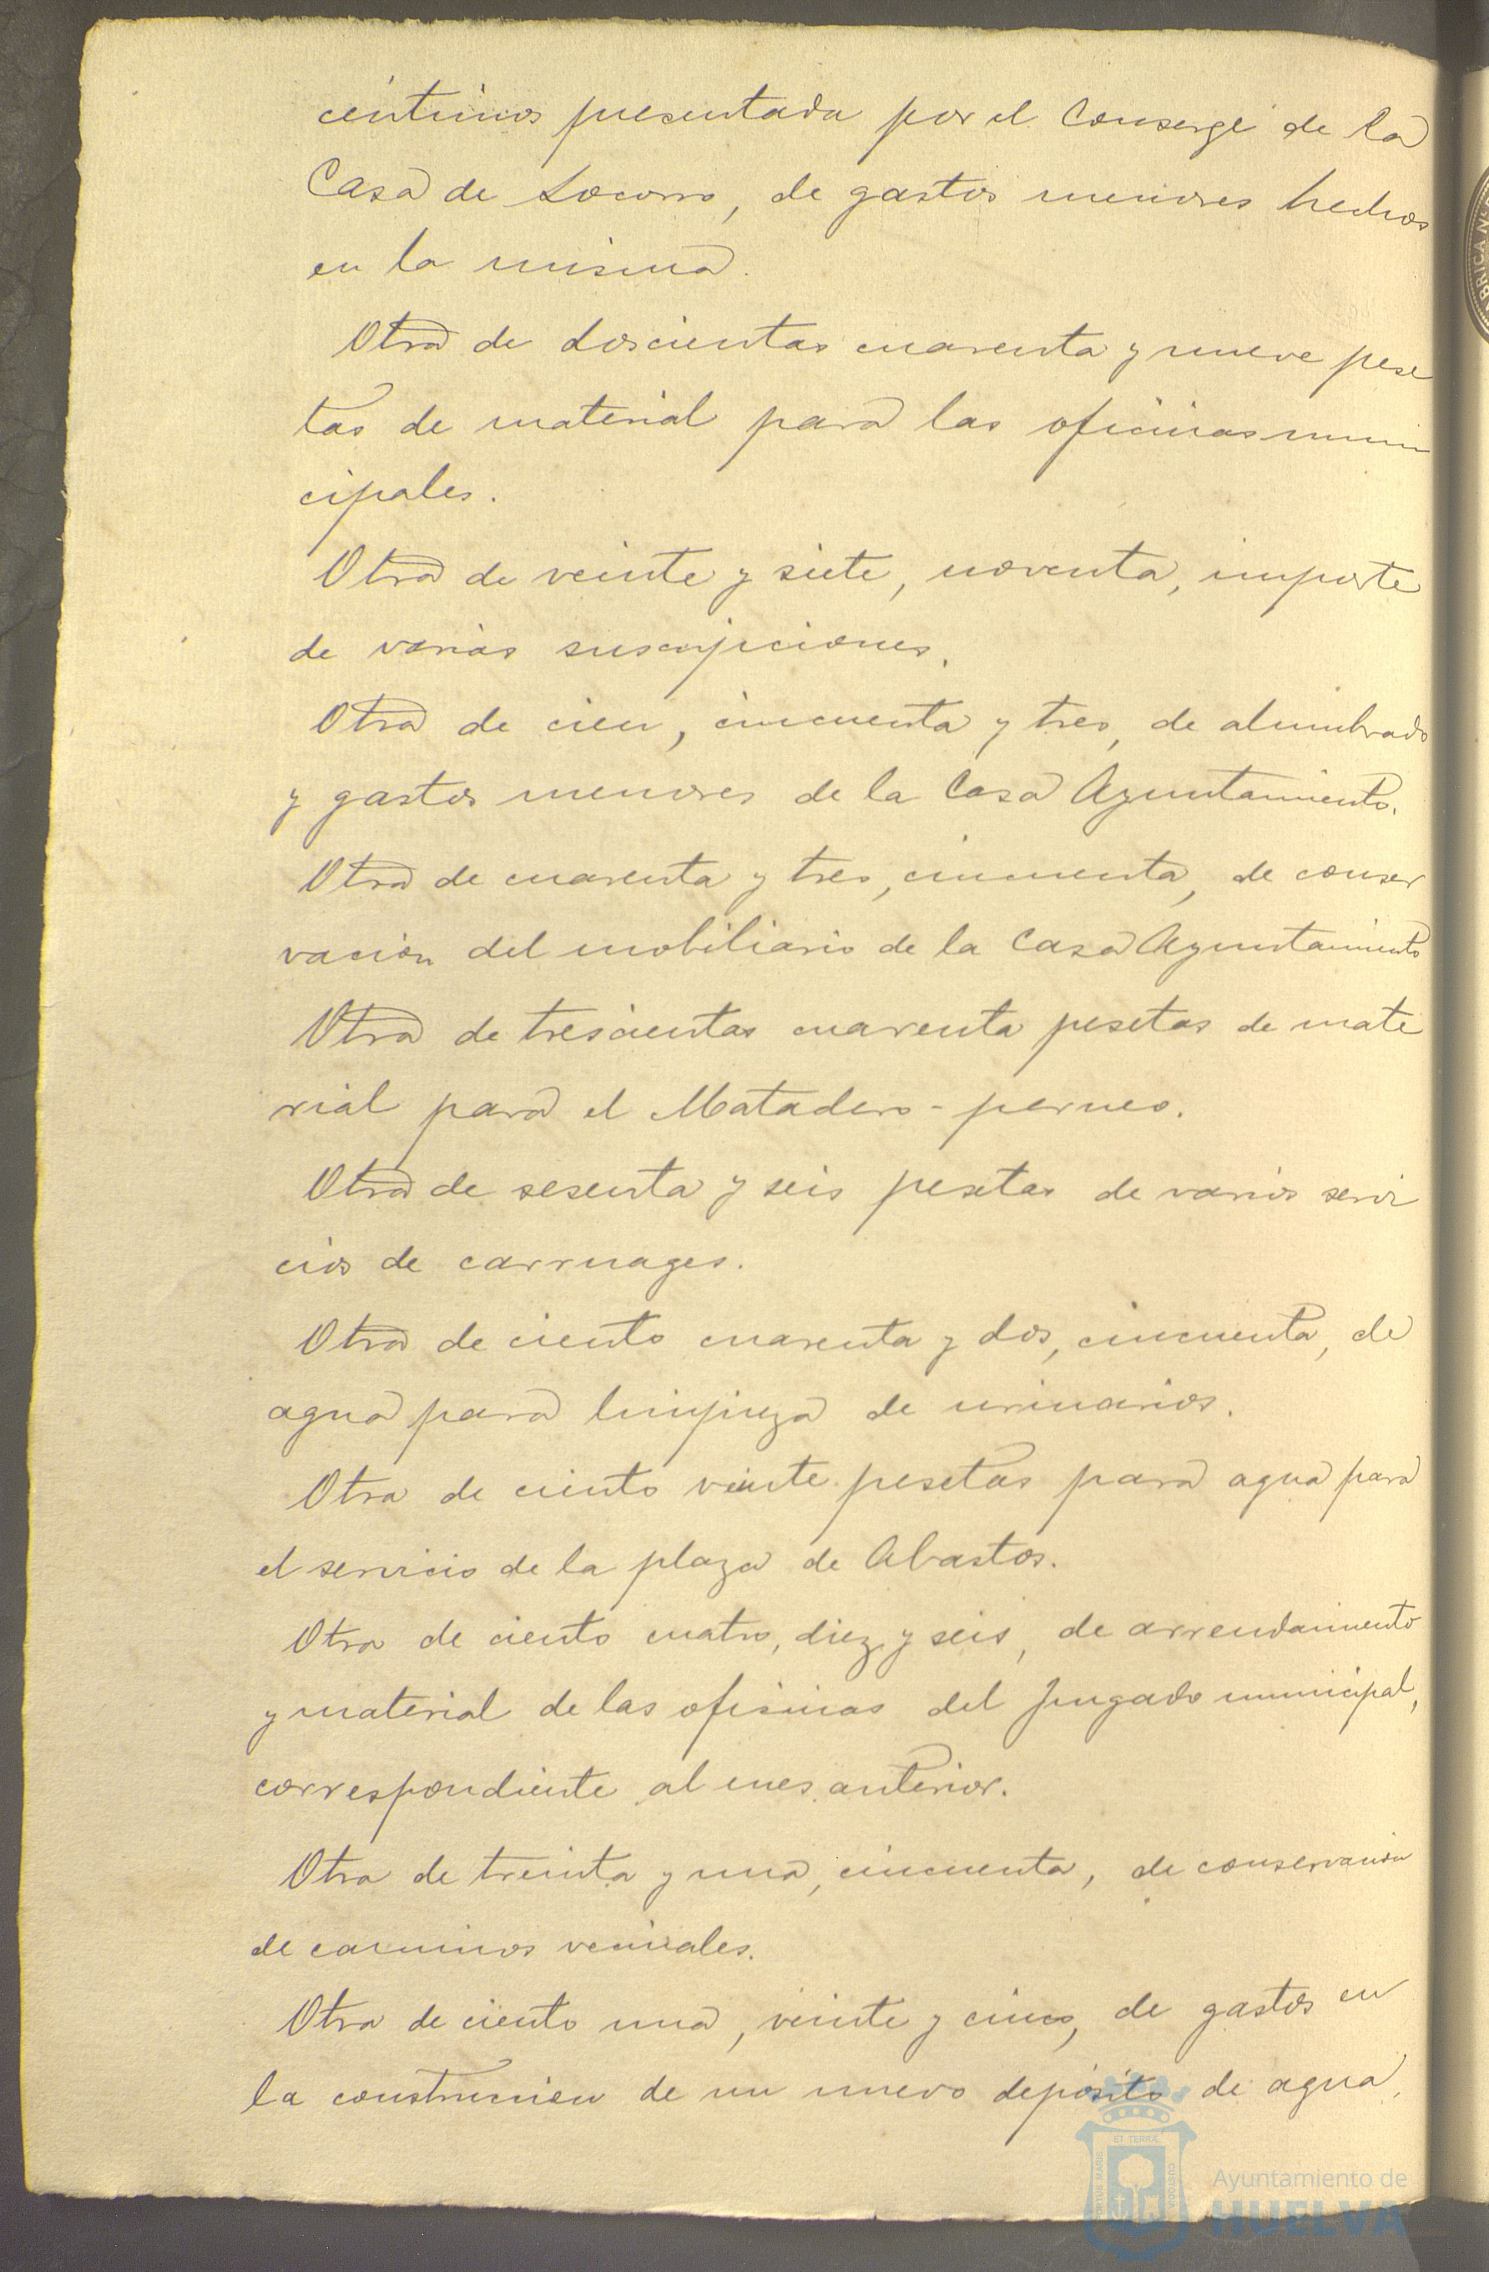 céntimos presentada por el Conserge de la
Casa de Socorro, de gastos menores hechos
en la misma.
Otra de doscientas cuarenta y nueve pese
tas de material para las oficinas muni
cipales.
Otra de veinte y siete, noventa, importe
de varias suscripciones.
Otra de cien, cincuenta y tres, de alumbrado
y gastos menores de la Casa Ayuntamiento.
Otra de cuarenta y tres, cincuenta, de conser
vación del mobiliario de la Casa Ayuntamiento
Otra de trescientas cuarenta pesetas de mate
rial para el Matadero-perneo.
Otra de sesenta y seis pesetas de varios servi
cios de carruages.
Otra de ciento cuarenta y dos, cincuenta, de
agua para limpieza de urinarios.
Otra de ciento veinte pesetas para agua para
el servicio de la plaza de Abastos.
Otra de ciento cuatro, diez y seis, de arrendamiento
y material de las oficinas del Juzgado municipal,
correspondiente al mes anterior.
Otra de treinta y una, cincuenta, de conservación
de caminos vecinales.
Otra de ciento una, veinte y cinco, de gastos en
la construcción de un nuevo depósito de agua,
Ayuntamiento de
HUELVA